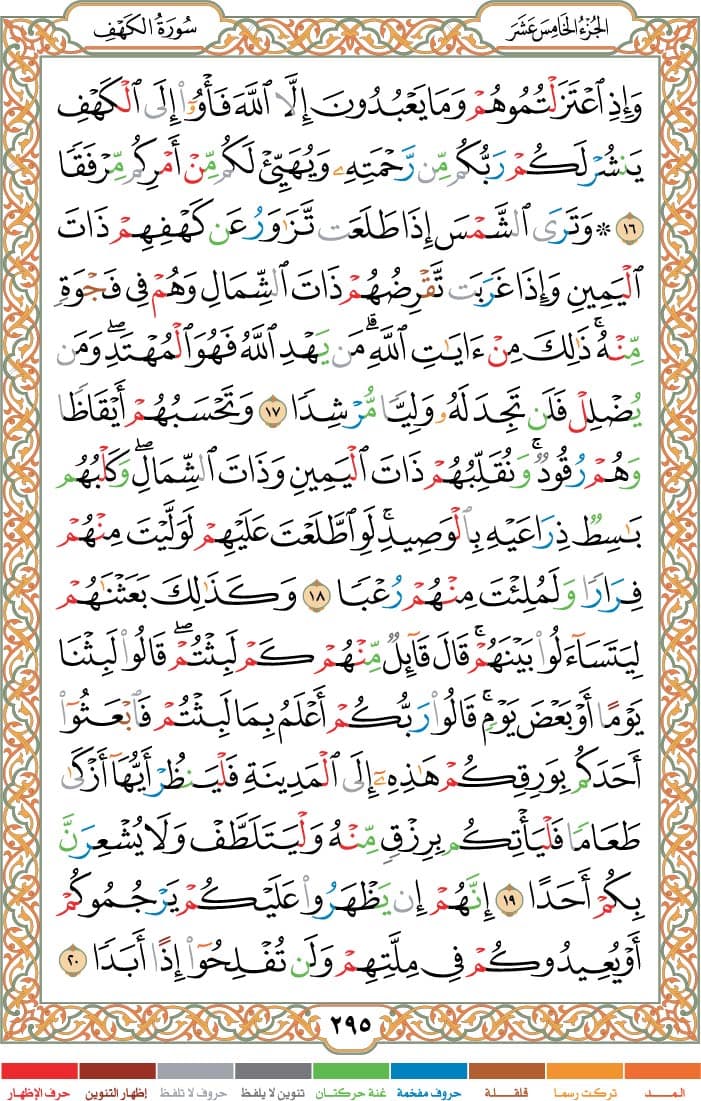 الجزء الخامس عشر
سورة الكهف
وَإِذِ ٱعْتَزَلْتُمُوهُمْ وَمَا يَعْبُدُونَ إِلَّا ٱللَّهَ فَأْوُۥٓا۟ إِلَى ٱلْكَهْفِ
يَنشُرْ لَكُمْ رَبُّكُم مِّن رَّحْمَتِهِۦ وَيُهَيِّئْ لَكُم مِّنْ أَمْرِكُم مِّرْفَقًا
١٦ ۞ وَتَرَى ٱلشَّمْسَ إِذَا طَلَعَت تَّزَٰوَرُ عَن كَهْفِهِمْ ذَاتَ
ٱلْيَمِينِ وَإِذَا غَرَبَت تَّقْرِضُهُمْ ذَاتَ ٱلشِّمَالِ وَهُمْ فِى فَجْوَةٍ
مِّنْهُ ۚ ذَٰلِكَ مِنْ ءَايَٰتِ ٱللَّهِ ۗ مَن يَهْدِ ٱللَّهُ فَهُوَ ٱلْمُهْتَدِ ۖ وَمَن
يُضْلِلْ فَلَن تَجِدَ لَهُۥ وَلِيًّا مُّرْشِدًا ١٧ وَتَحْسَبُهُمْ أَيْقَاظًا
وَهُمْ رُقُودٌ ۚ وَنُقَلِّبُهُمْ ذَاتَ ٱلْيَمِينِ وَذَاتَ ٱلشِّمَالِ ۖ وَكَلْبُهُم
بَٰسِطٌ ذِرَاعَيْهِ بِٱلْوَصِيدِ ۚ لَوِ ٱطَّلَعْتَ عَلَيْهِمْ لَوَلَّيْتَ مِنْهُمْ
فِرَارًا وَلَمُلِئْتَ مِنْهُمْ رُعْبًا ١٨ وَكَذَٰلِكَ بَعَثْنَٰهُمْ
لِيَتَسَآءَلُوا۟ بَيْنَهُمْ ۚ قَالَ قَآئِلٌ مِّنْهُمْ كَمْ لَبِثْتُمْ ۖ قَالُوا۟ لَبِثْنَا
يَوْمًا أَوْ بَعْضَ يَوْمٍ ۚ قَالُوا۟ رَبُّكُمْ أَعْلَمُ بِمَا لَبِثْتُمْ فَٱبْعَثُوٓا۟
أَحَدَكُم بِوَرِقِكُمْ هَٰذِهِۦٓ إِلَى ٱلْمَدِينَةِ فَلْيَنظُرْ أَيُّهَآ أَزْكَىٰ
طَعَامًا فَلْيَأْتِكُم بِرِزْقٍ مِّنْهُ وَلْيَتَلَطَّفْ وَلَا يُشْعِرَنَّ
بِكُمْ أَحَدًا ١٩ إِنَّهُمْ إِن يَظْهَرُوا۟ عَلَيْكُمْ يَرْجُمُوكُمْ
أَوْ يُعِيدُوكُمْ فِى مِلَّتِهِمْ وَلَن تُفْلِحُوٓا۟ إِذًا أَبَدًا ٢٠
٢٩٥
المـــد تركت رسما قلقلة حروف مفخمة غنة حركتان تنوين لا يلفظ حروف لا تلفظ إظهار التنوين حرف الإظهار